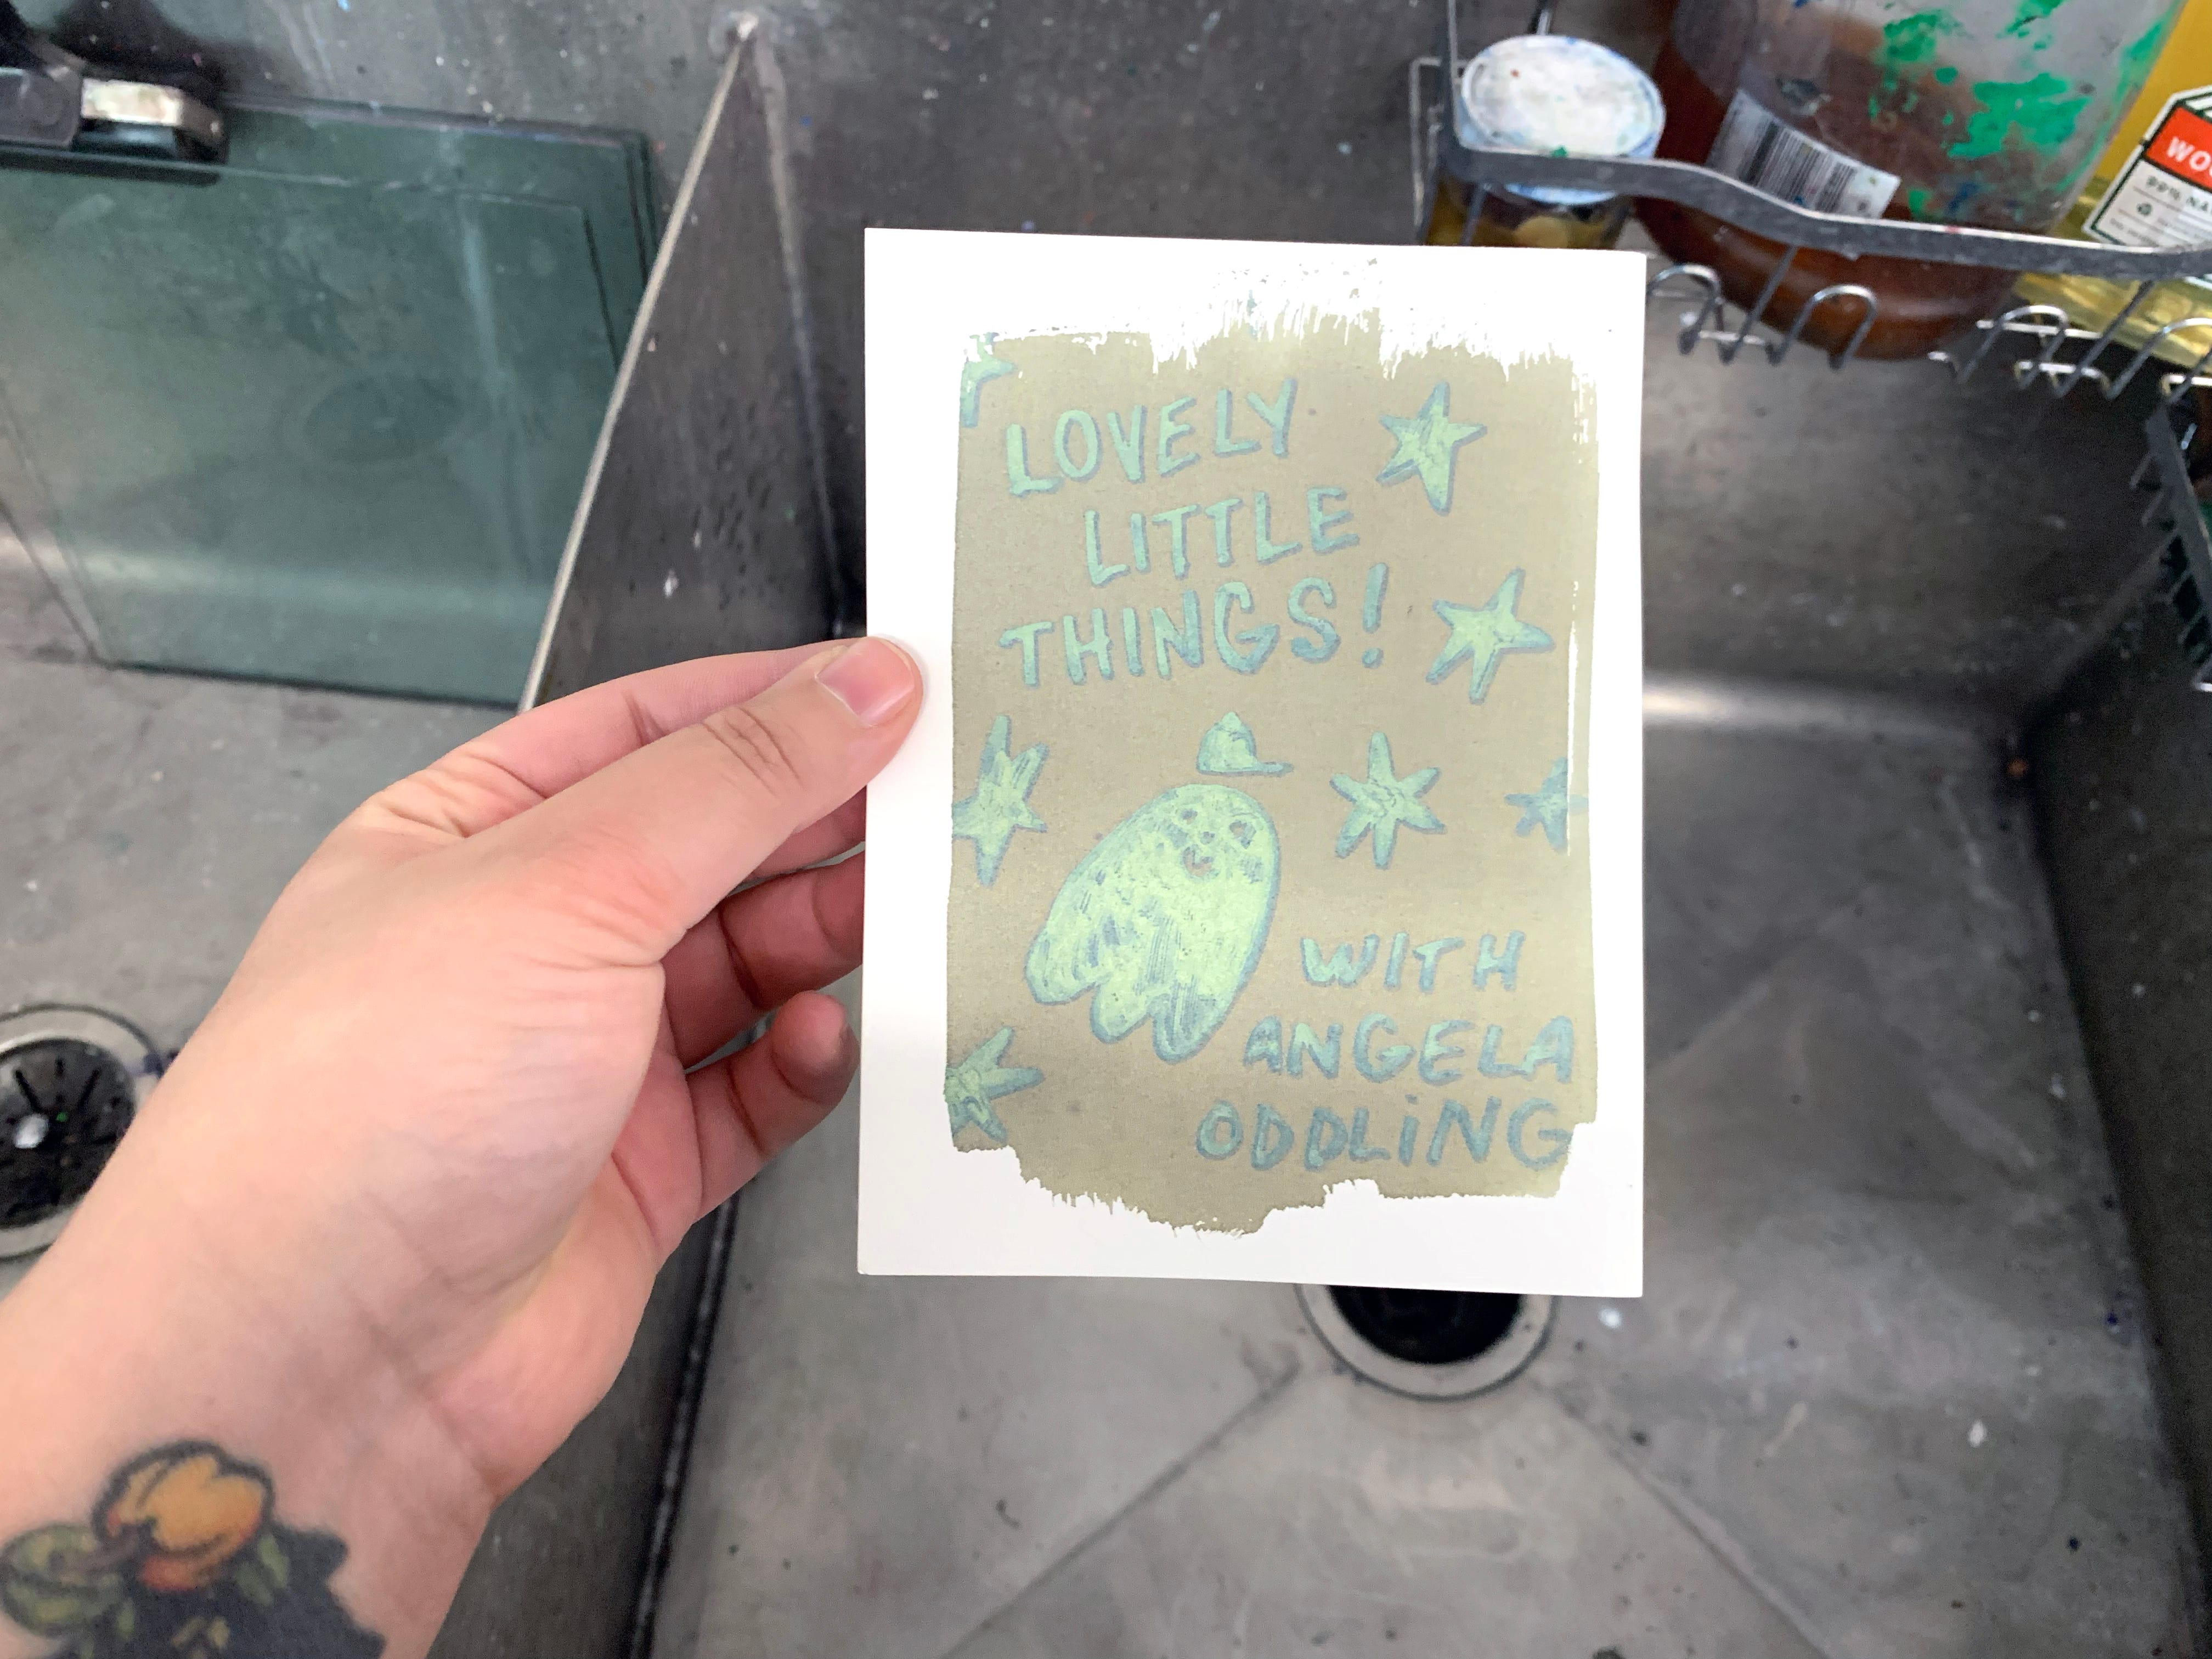 LOVELY
LITTLE
THINGS!
WITH
ANGELA
ODDLiNG